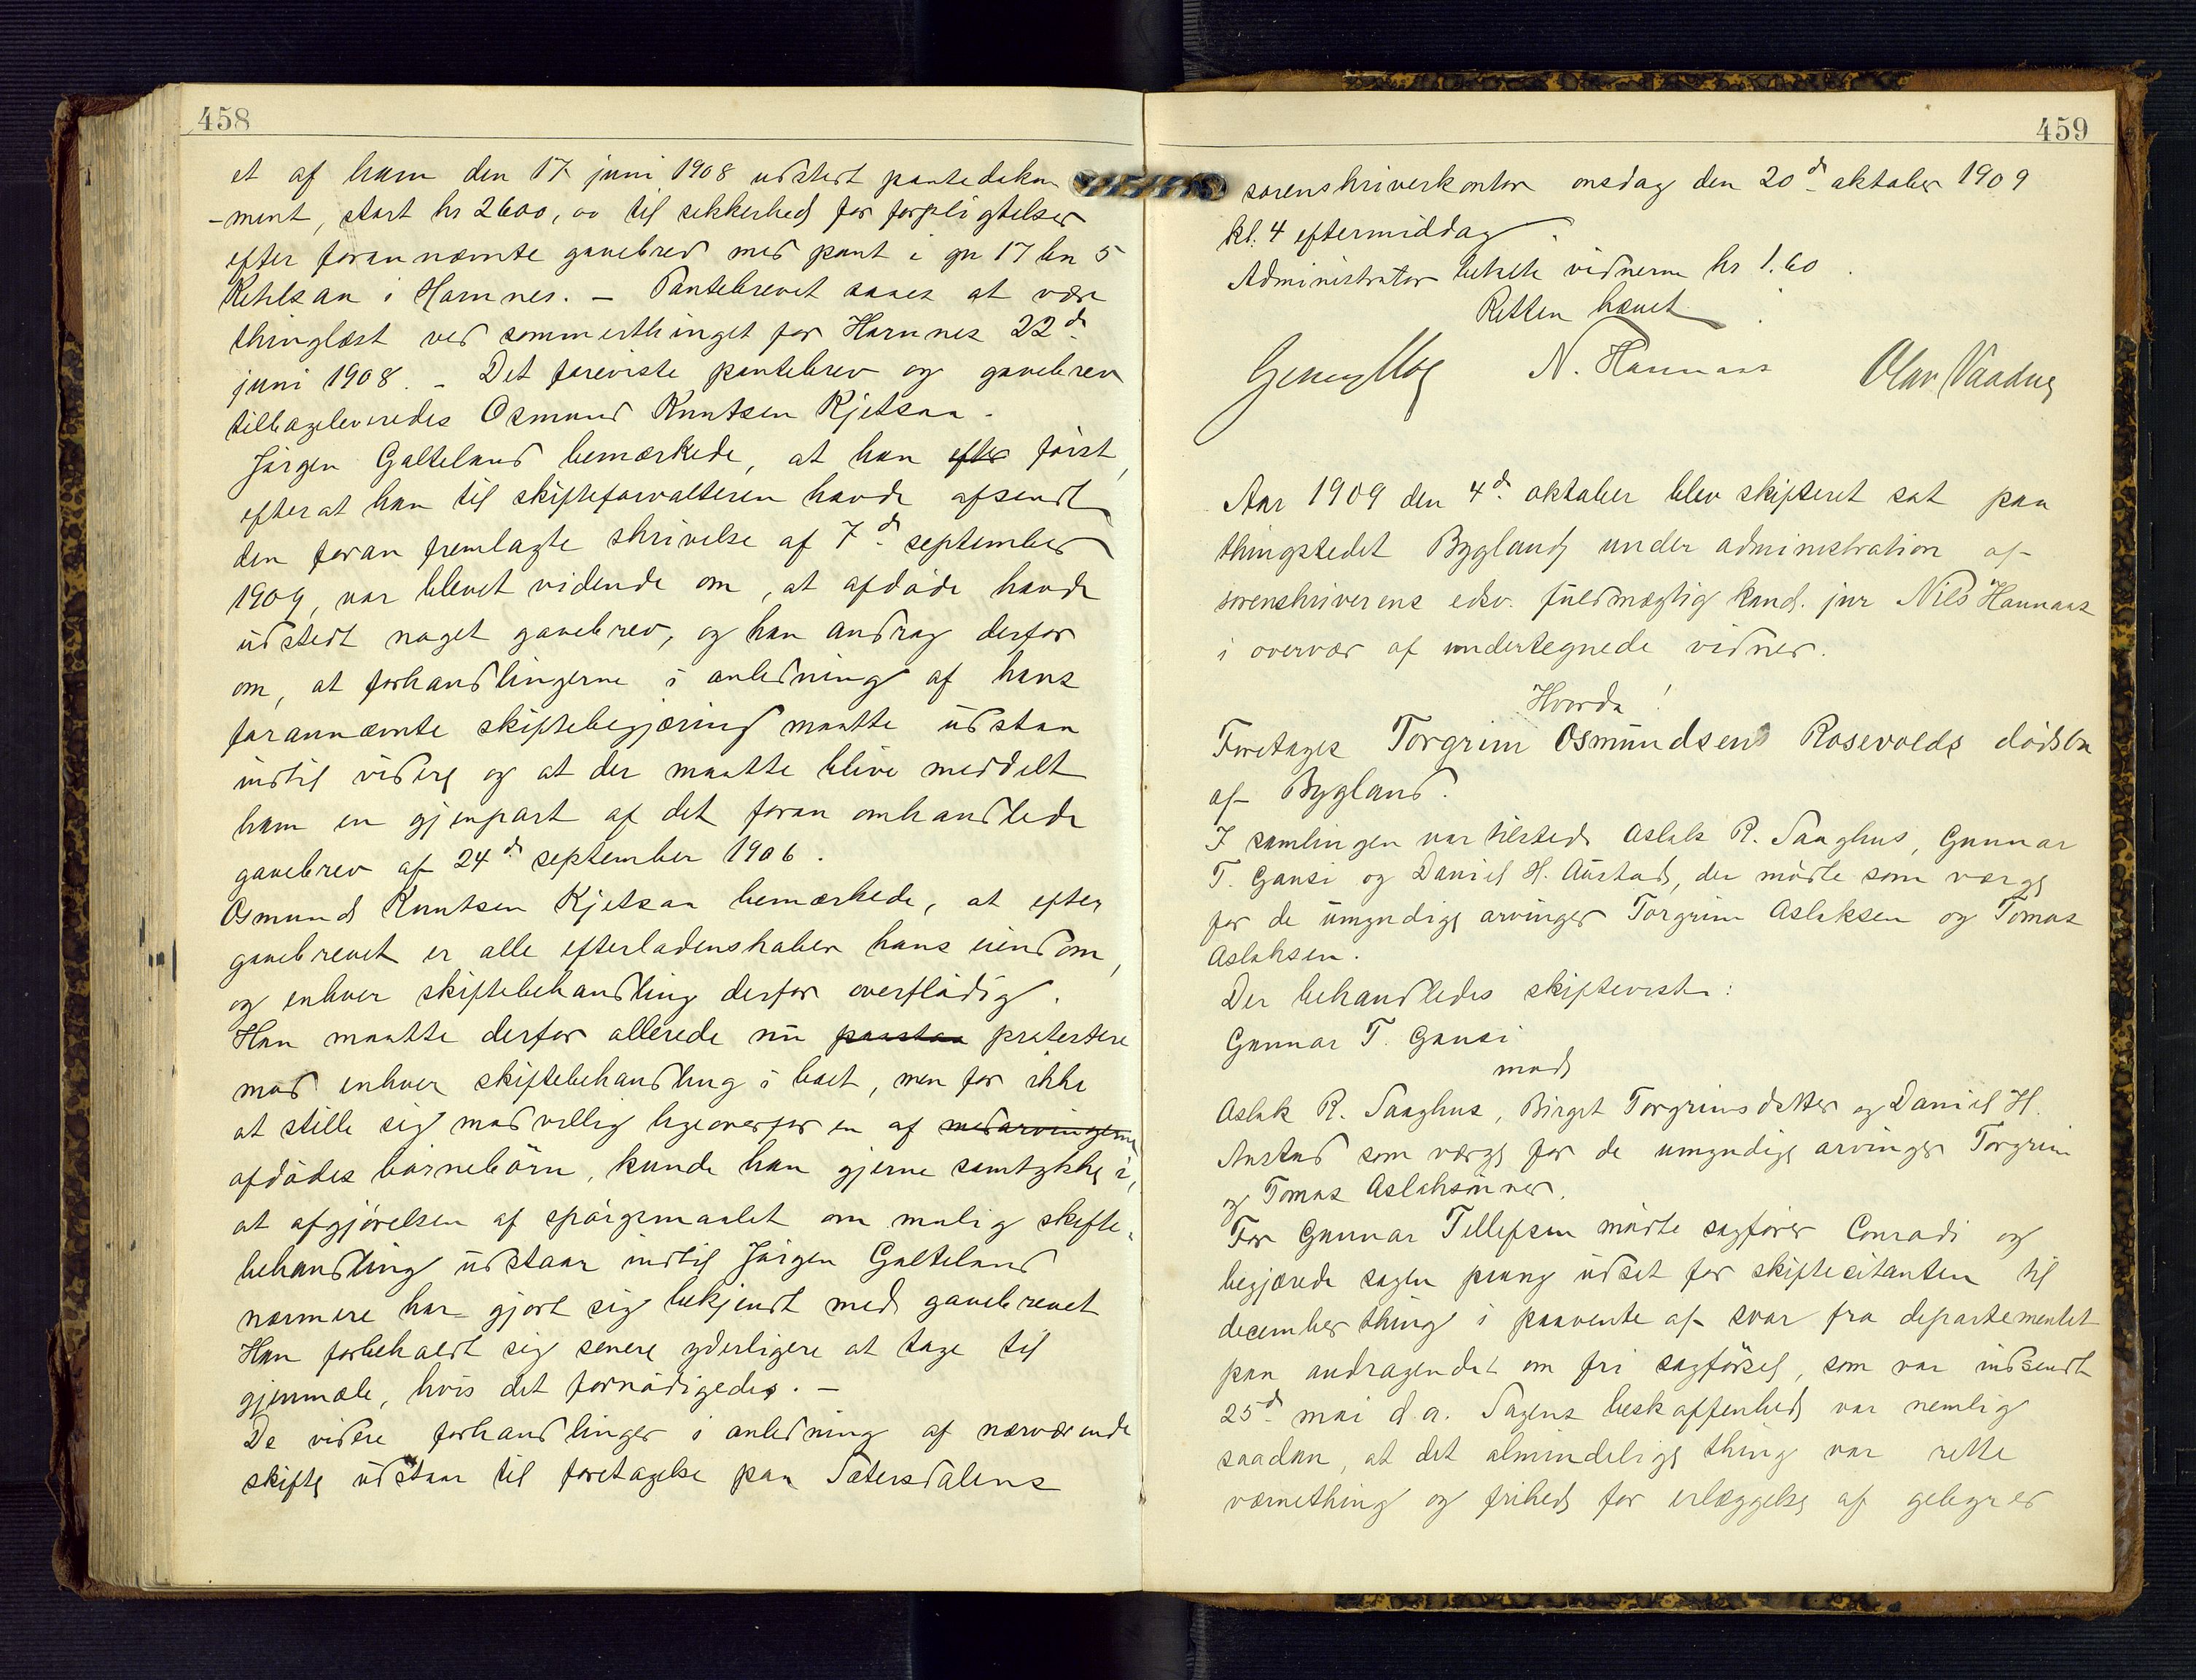 458
et af ham den 17 juni 1908 udstedt pantedoku
-ment, stort kr 2600,00 til sikkerhed for forpligtelser
efter forannævnte gavebrev med pant i gn 17 bn 5
Ketilsaa i Hornnes. – Pantebrevet saaes at være
thinglæst ved sommerthinget for Hornnes 22d
juni 1908. – Det foreviste pantebrev og gavebrev
tilbageleveredes Osmund Knutsen Kjetsaa.
Jörgen Galteland bemærkede, at han efter först,
efter at han til skifteforvalteren havde afsendt
den foran fremlagte skrivelse af 7d september
1909, var blevet vidende om, at afdöde havde
udstedt noget gavebrev, og han androg derfor
om, at forhandlingerne i anledning af hans
forannævnte skiftebegjæring maatte udstaa
indtil videre og at der maatte blive meddelt
ham en gjenpart af det foran omhandlede
gavebrev af 24d september 1906.
Osmund Knutsen Kjetsaa bemærkede, at efter
gavebrevet er alle efterladenskaber hans eiendom,
og enhver skiftebehandling derfor overflödig.
Han maatte derfor allerede nu paastaa protestere
mod enhver skiftebehandling i boet, men for ikke
at stille sig modvillig ligeoverfor en af medarvingerne
afdödes börnebörn, kunde han gjerne samtykke i,
at afgjörelsen af spörgsmaalet om mulig skifte-
behandling udstaar indtil Jörgen Galteland
nærmere har gjort sig bekjendt med gavebrevet
Han forbeholdt sig senere yderligere at tage til
gjenmæle, hvis det fornödigedes. –
De videre forhandlinger i anledning af nærværende
skifte udstaar til foretagelse paa Sætersdalens
459
sorenskriverkontor onsdag den 20d oktober 1909
kl. 4 eftermiddag.
Administrator betalte vidnerne kr 1.60.
Retten hævet.
N. Hannaas Olav Vaadne
Aar 1909 den 4d oktober blev skifteret sat paa
thingstedet Bygland under administration af
sorenskriverens edsv. fuldmægtig kand. jur Nils Hannaas
i overvær af undertegnede vidner.
Hvorda!
Foretages Torgrim Osmundsens Rosevolds dödsbo
af Bygland.
I samlingen var tilstede Aslak R. Saaghus, Gunnar
T. Gausi og Daniel H. Austad, der mödte som værge
for de umyndige arvinger Torgrim Aslaksen og Tomas
Aslaksen.
Der behandledes skiftetvisten:
Gunnar T. Gausi
mod
Aslak R. Saaghus, Birgit Torgrimsdatter og Daniel H.
Austad som værge for de umyndige arvinger Torgrim
og Tomas Aslaksönner.
For Gunnar Tellefsen mödte sagförer Conradi og
begjærede sagen paany udsat for skiftecitanten til
december thing i paavente af svar fra departementet
paa andragendet om fri sagförsel, som var indsendt
25d mai d.a. Sagens beskaffenhed var nemlig
saadan, at det almindelige thing var rette
værnething og frihed for erlæggelse af gebyrer